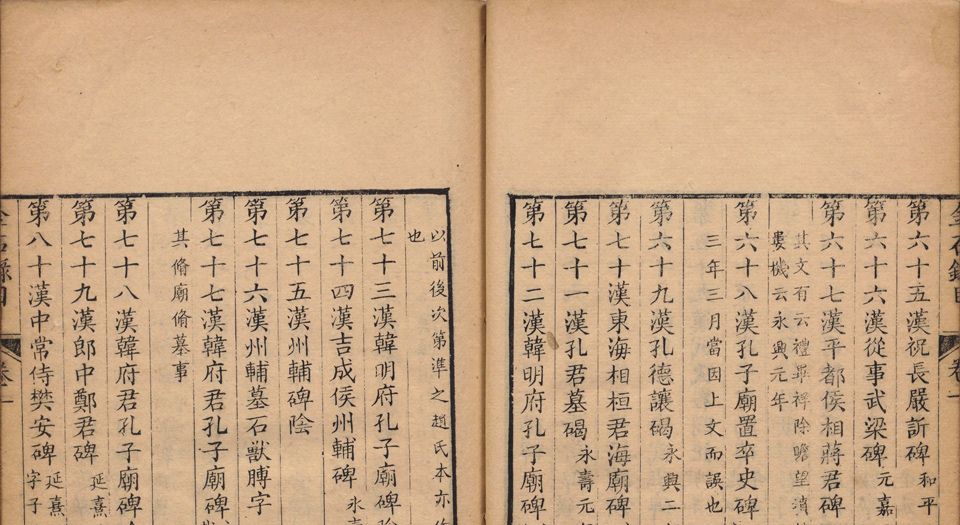 金石錄目 卷一
第六十五漢祝長嚴訢碑 和平
第六十六漢從事武梁碑 元嘉
第六十七平都侯相蔣君碑
其文有云禮畢祥除瞻望
婁機云永興元年
第六十八漢孔子廟置卒史碑
三年三月當因上文而誤也
第六十九漢孔德讓碣 永興二
第七十漢東海相桓君海廟碑
第七十一漢孔君墓碣 永壽元
第七十二漢韓明府孔子廟碑
以前後次第準之趙氏本亦
也
第七十三漢韓明府孔子廟碑陰
第七十四漢吉成侯州輔碑 永壽
第七十五漢州輔碑陰
第七十六漢州輔墓石獸膊字
第七十七漢韓府君孔子廟碑
其脩廟脩墓事
第七十八漢韓府君孔子廟碑
第七十九漢郎中鄭君碑 延熹
第八十漢中常侍樊安碑 延熹
字子
金石錄目 卷一